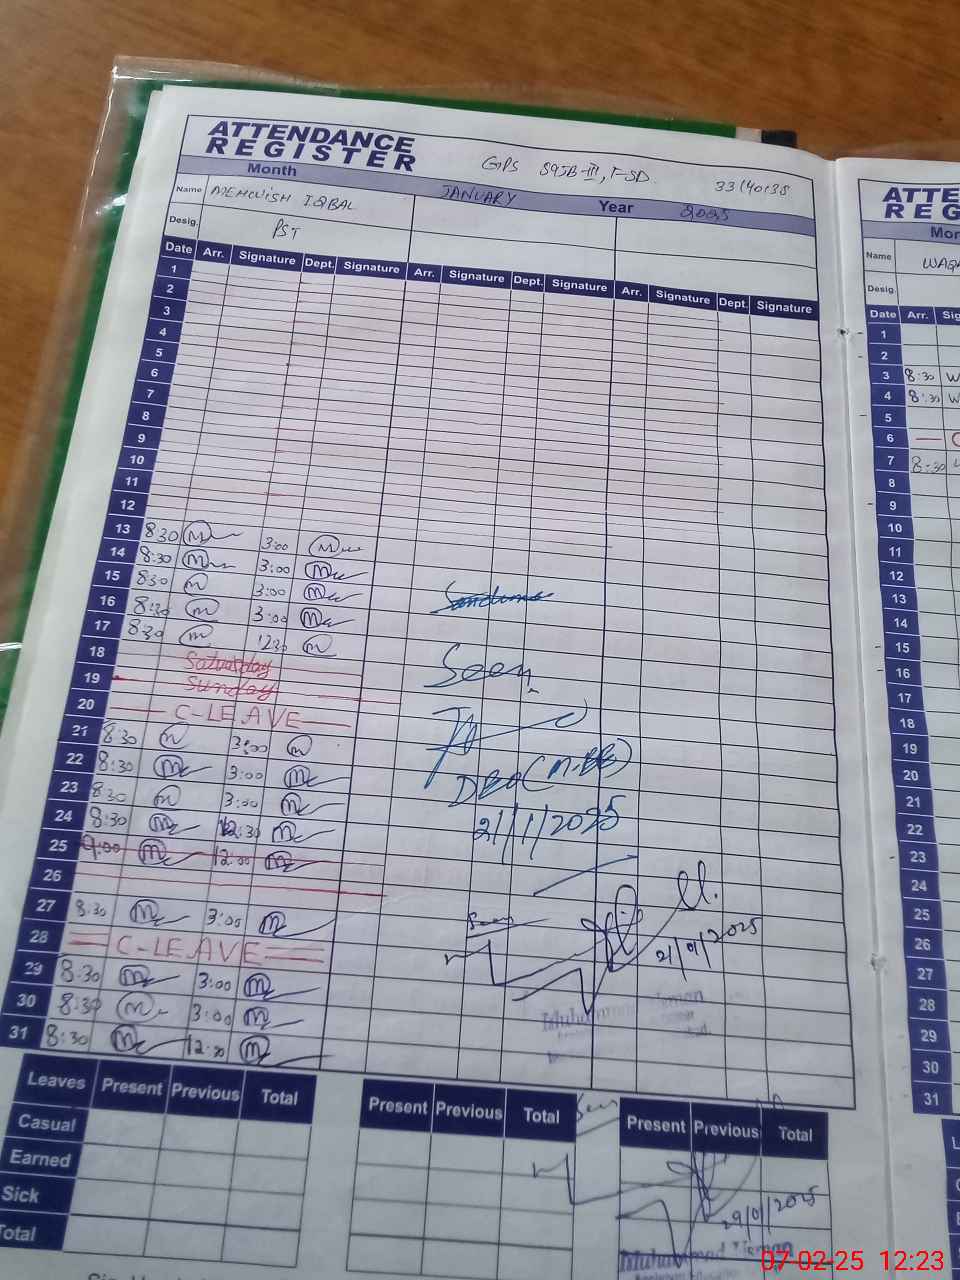 ATTENDANCE
REGISTER
GPS 89JB-III, FSD 33140138
Month JANUARY Year 2025
Name MEHWISH IQBAL
Desig. PST
Date Arr. Signature Dept. Signature Arr. Signature Dept. Signature Arr. Signature Dept. Signature
1
2
3
4
5
6
7
8
9
10
11
12
13 8:30 3:00
14 8:30 3:00
15 8:30 3:00
16 8:30 3:00
17 8:30 1230
18 Saturday
19 Sunday
20 C-LEAVE
21 8:30 3:00
22 8:30 3:00
23 8:30 3:00
24 8:30 12:30
25 9:00 12:00
26
27 8:30 3:00
28 C-LEAVE
29 8:30 3:00
30 8:30 3:00
31 8:30 12:30
Seen
21/1/2025
21/01/2025
Muhammad
Leaves Present Previous Total
Casual
Earned
Sick
Total
Present Previous Total
Present Previous Total
29/01/2025
Muhammad
ATTE
REG
Mon
Name
Desig.
Date Arr. Sig
1
2
3 8:30
4 8:30
5
6
7 8:30
8
9
10
11
12
13
14
15
16
17
18
19
20
21
22
23
24
25
26
27
28
29
30
31
07-02-25 12:23